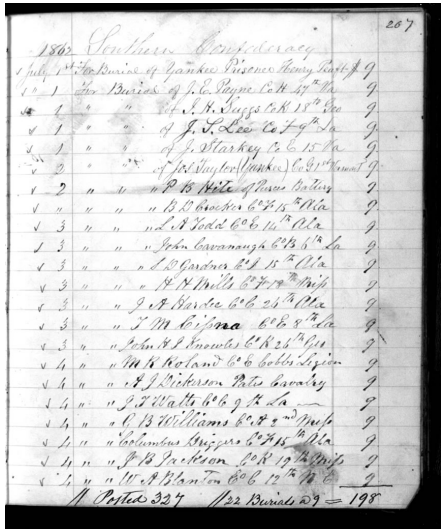 207
1862 Southern Confederacy
July 1st For Burial of Yankee Prisoner Henry 9
" 1 For Burial of J. E. Payne Co H 47th Va 9
" 1 " " of J. H. Suggs Co K 18th Geo 9
" 1 " " of J. S. Lee Co F 9th La 9
" 1 " " of J. Starkey Co E 15 Va 9
" 2 " " of Jos Taylor (Yankee) Co G 1st 9
" 2 " " " P B Hite of Battery 9
" " " " " B D Crocker Co F 15th Ala 9
" 3 " " " L A Todd Co E 14th Ala 9
" 3 " " " John Cavanaugh Co B 6th La 9
" 3 " " " S D Gardner Co I 15 Ala 9
" 3 " " " H H Wills Co H 18th Miss 9
" 3 " " " J A Harder Co C 24th Ala 9
" 3 " " " T M Co E 8th La 9
" 3 " " " John H J Knowles Co K 26th Geo 9
" 4 " " " M R Roland Co C Cobbs Legion 9
" 4 " " " A J Dickerson Cavalry 9
" 4 " " " J F Watts Co C 9th La 9
" 4 " " " C B Williams Co A 2nd Miss 9
" 4 " " " Columbus Driggers Co F 15th Ala 9
" 4 " " " J B Jackson Co K 19th Miss 9
" 4 " " " W A Blanton Co C 12th N C 9
// Posted 327 // 22 Burials @ 9 = 198